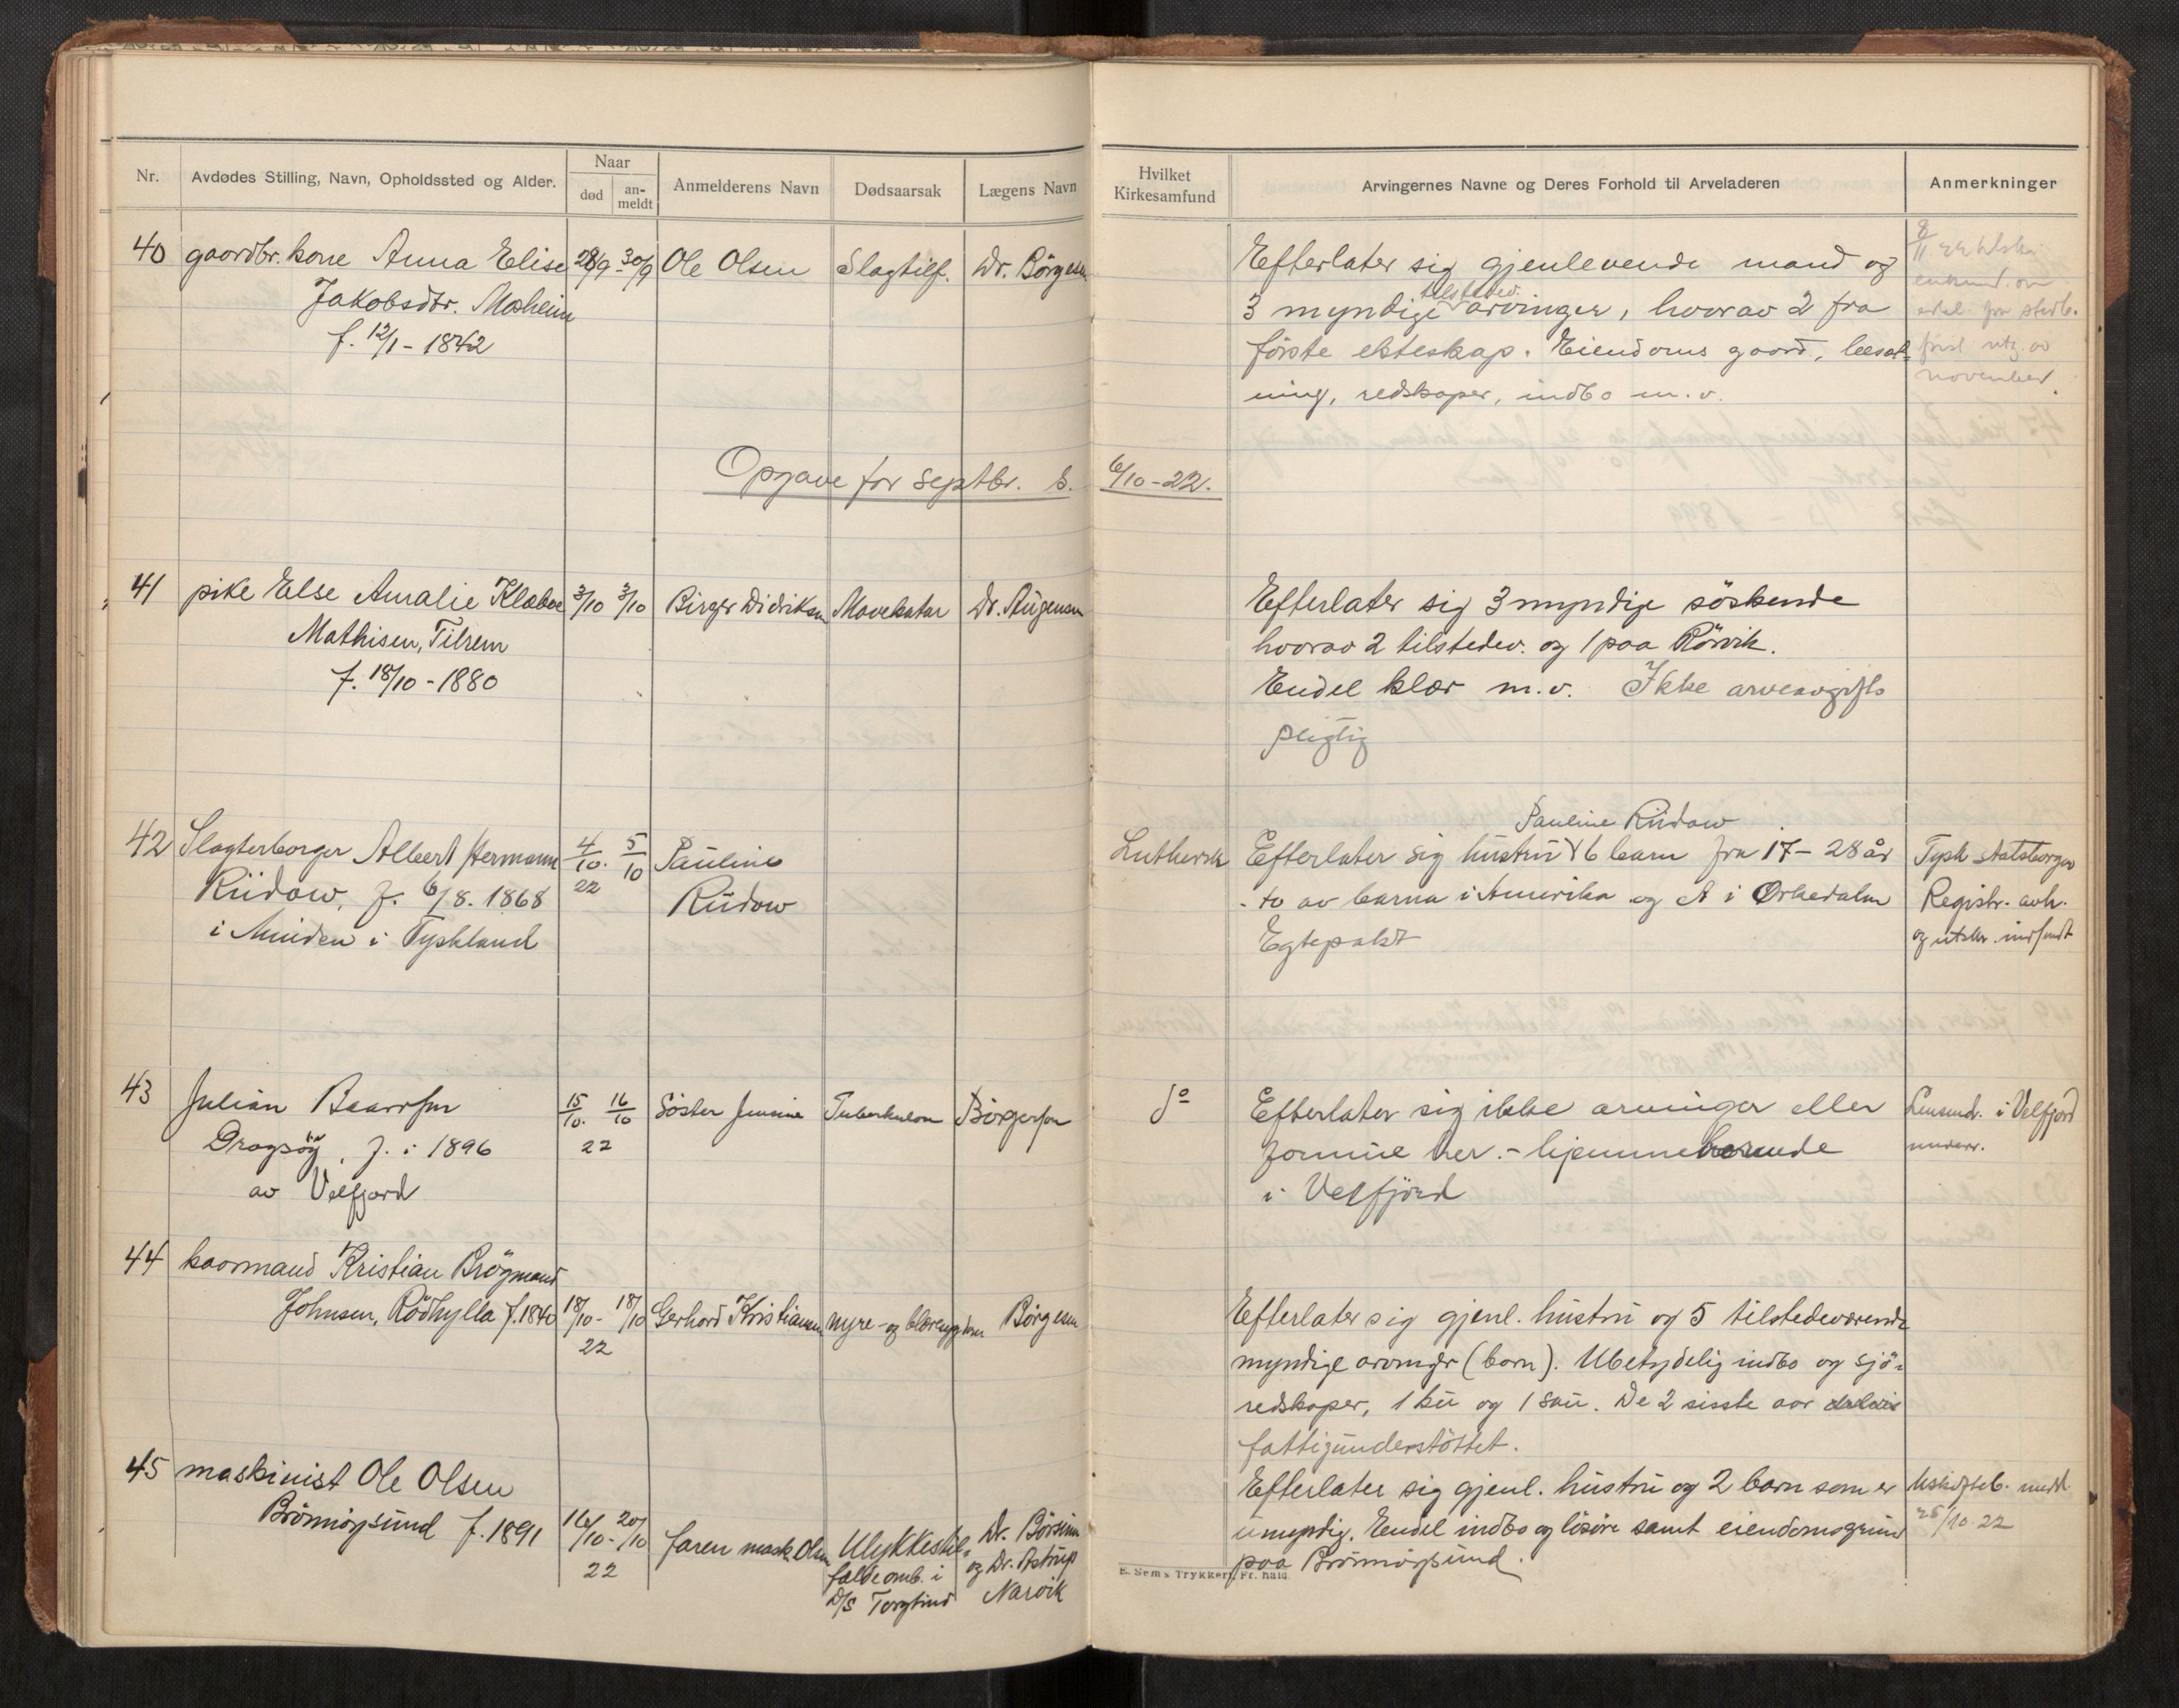 Nr.
Avdødes Stilling, Navn, Opholdssted og Alder.
Naar
død
an-
meldt
Anmelderens Navn
Dødsaarsak
Lægens Navn
Hvilket
Kirkesamfund
Arvingernes Navne og Deres Forhold til Arveladeren
Anmerkninger
40 gaardbr. kone Anna Elise 28/9 - 30/9 Ole Olsen Slagtilf. Dr. Börgesen
Jakobsdtr. Moheim
f. 12/1 - 1842
Efterlater sig gjenlevende mand og
tilstedev.
3 myndige arvinger, hvorav 2 fra
förste ekteskap. Eiendoms gaard, besæt-
ning, redskaper, indbo m.v.
8/11
november.
Opgave for septbr. s. 6/10-22.
41 pike Else Amalie Klæboe 3/10 3/10 Birger Didriksen Mavekatar Dr. Aügensen
Mathisen, Tilrem
f. 18/10 - 1880
Efterlater sig 3 myndige söskende
hvorav 2 tilstedev. og 1 paa Rörvik.
Endel klær m.v. Ikke arveavgifts
pligtig
42 Slagterborger Albert Hermann 4/10. 22 5/10 Pauline
Rüdow, f. 6/8. 1868 Rüdow
i Minden i Tyskland
Luthersk
Pauline Rüdow
Efterlater sig hüstrü & 6 barn fra 17 - 28 år
- to av barna i Amerika og 1 i Orkedalen
Egtepakt
Tysk statsborger
Registr. avh.
og utskr. indsendt
43 Julian Baardsen 15/10. 22 16/10 Söster Jensine Tuberkulose Börgesen
Dragsöy, f. i 1896
av Velfjord
do
Efterlater sig ikke arvinger eller
formue her. - hjemmehørende
i Velfjord
Lensmd. i Velfjord
underr.
44 kaarmand Kristian Brögmand
Johnsen, Rödhylla f. 1840 18/10 - 22 18/10 Gerhard Kristiansen nyre- og blæresygdom Börgesen
Efterlater sig gjenl. hüstrü og 5 tilstedeværende
myndige arvinger (barn). Ubetydelig indbo og sjö-
redskaper, 1 kü og 1 saü. De 2 sisste aar delvis
fattigünderstöttet.
45 maskinist Ole Olsen
Brönnöysünd f. 1891 16/10 - 22 20/10 faren mask. Olsen Ulykkestil-
fælde omb. i
D/S Torgtind
Dr.
og Dr. Astrup
Narvik
Efterlater sig gjenl. hüstrü og 2 barn som er
ümyndig. Endel indbo og lösöre samt eiendomsgrund
paa Brönnöysünd.
Uskifteb. medd.
25/10-22
E. Sem's Trykkeri, Fr. hald